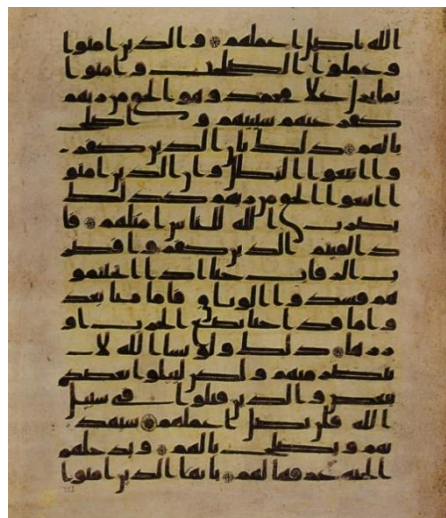 الله اضل اعملهم والذين امنوا
وعملوا الصلحت وامنوا
بما نزل على محمد وهو الحق من ربهم
كفر عنهم سيتهم واصلح
بالهم ذلك بان الذين كفر
وا اتبعوا البطل وان الذين امنو
ا اتبعوا الحق من ربهم كذلك
يضرب الله للناس امثلهم فا
ذا لقيتم الذين كفروا فضر
ب الرقاب حتى اذا اثخنتمو
هم فشدوا الوثاق فاما منا بعد
واما فدا حتى تضع الحرب او
زرها ذلك ولو يشا الله لا
نتصر منهم ولكن ليبلوا بعضكم
ببعض والذين قتلوا في سبيل
الله فلن يضل اعملهم سيهد
يهم ويصلح بالهم ويدخلهم
الجنة عرفها لهم يايها الذين امنوا